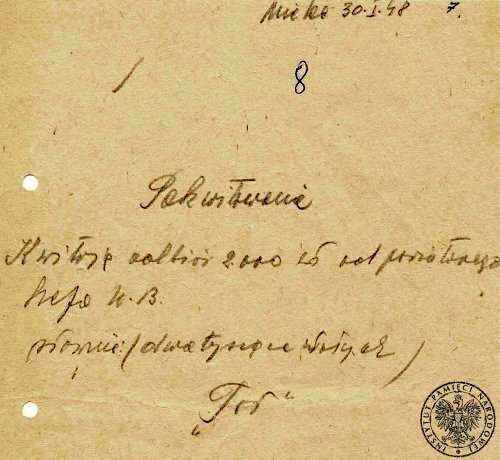 30.I.48 7.
8
Pokwitowanie
Kwituję odbiór 2000 zł od powiatowego
szefa U.B.
słownie: (dwa tysiące złotych)
INSTYTUT PAMIĘCI NARODOWEJ